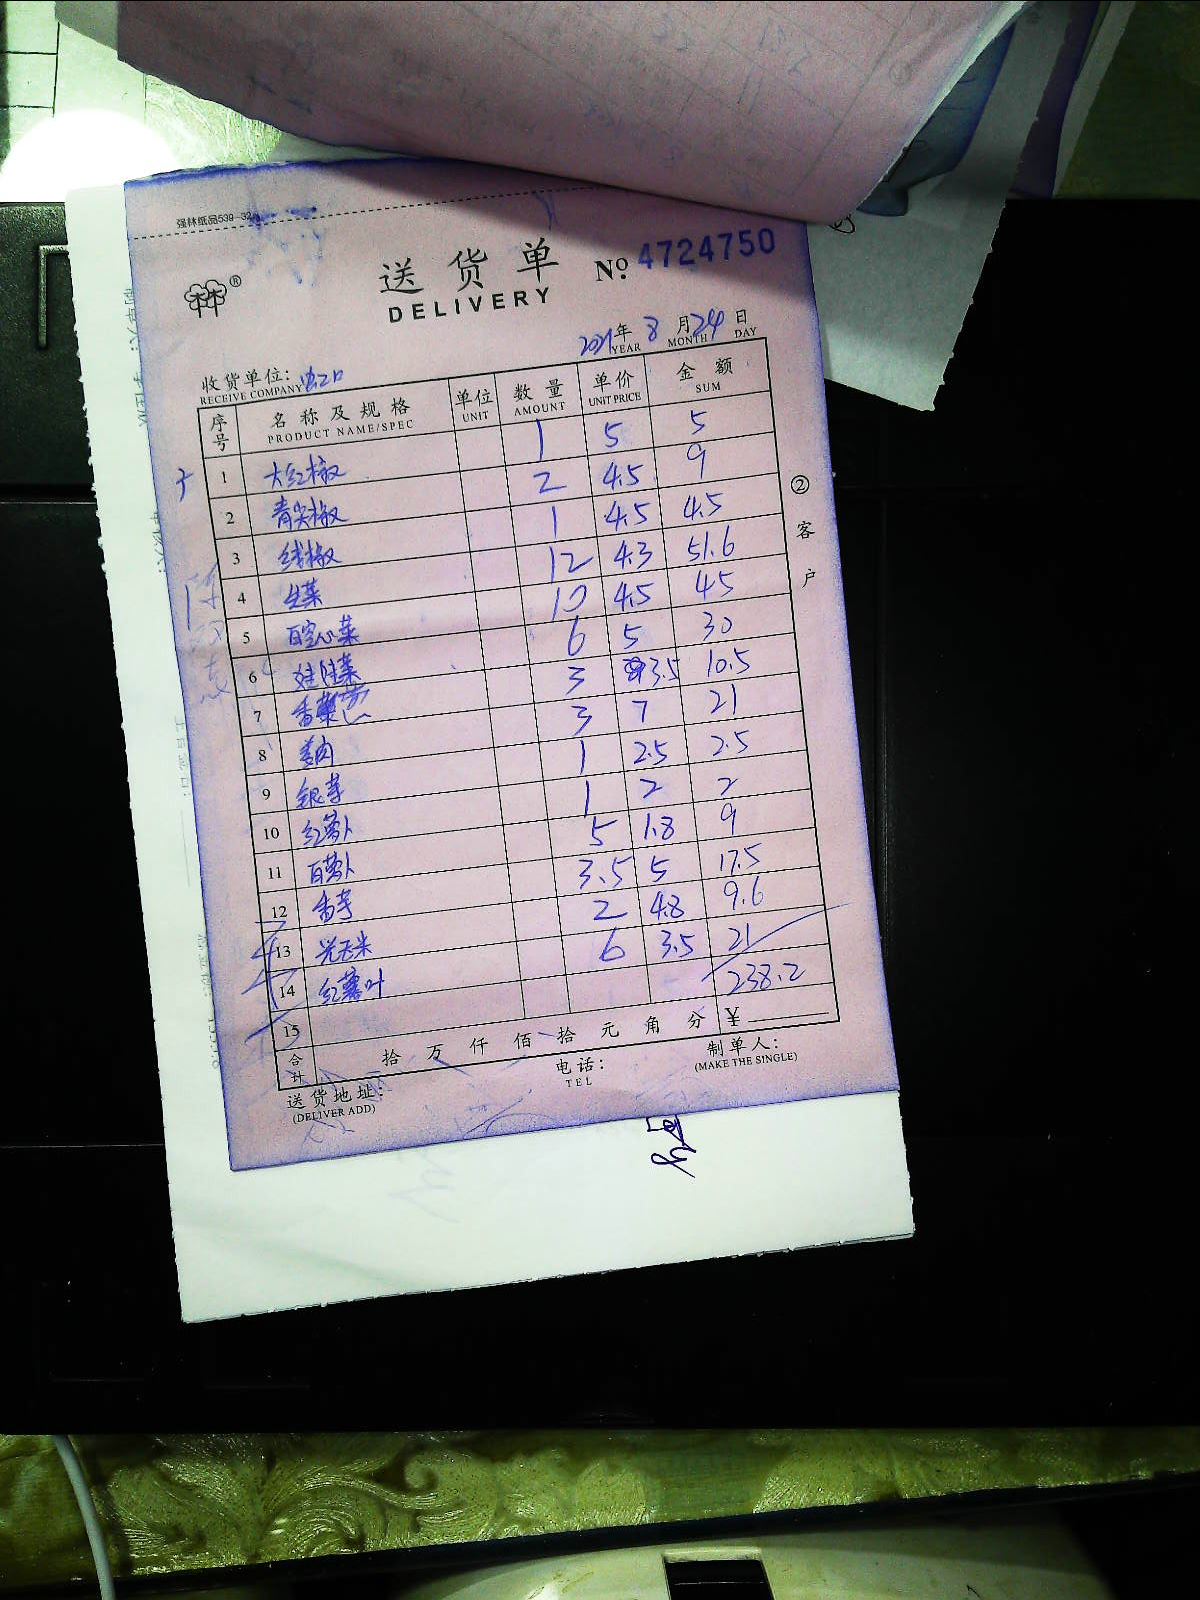 强林纸品539-32
送货单 No. 4724750
DELIVERY
2021年 8月 24日
YEAR MONTH DAY
收货单位:
RECEIVE COMPANY
序号 名称及规格 单位 数量 单价 金额
PRODUCT NAME/SPEC UNIT AMOUNT UNIT PRICE SUM
1 大红椒 1 5 5
2 青尖椒 2 4.5 9
3 线椒 1 4.5 4.5
4 生菜 12 4.3 51.6
5 白空心菜 10 4.5 45
6 娃娃菜 6 5 30
7 香 3 3.5 10.5
8 姜肉 3 7 21
9 银芽 1 2.5 2.5
10 红萝卜 1 2 2
11 白萝卜 5 1.8 9
12 香芋 3.5 5 17.5
13 光玉米 2 4.8 9.6
14 红薯叶 6 3.5 21
15 238.2
合计 拾 万 仟 佰 拾 元 角 分 ¥
送货地址: 电话: 制单人:
(DELIVER ADD) TEL (MAKE THE SINGLE)
②客户